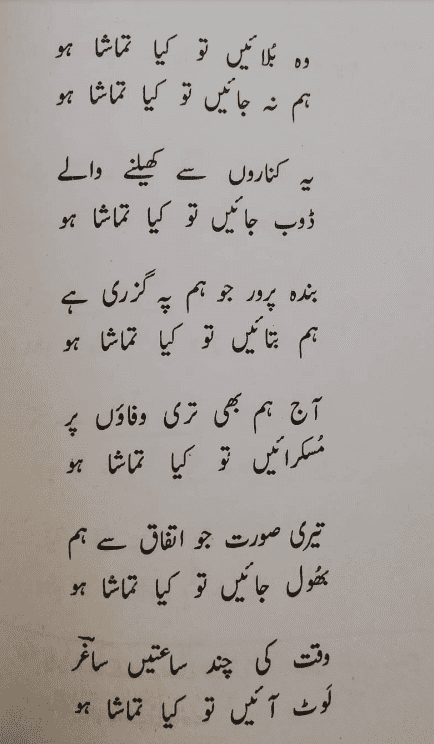 وہ بُلائیں تو کیا تماشا ہو
ہم نہ جائیں تو کیا تماشا ہو
یہ کناروں سے کھیلنے والے
ڈوب جائیں تو کیا تماشا ہو
بندہ پرور جو ہم پہ گزری ہے
ہم بتائیں تو کیا تماشا ہو
آج ہم بھی تری وفاؤں پر
مُسکرائیں تو کیا تماشا ہو
تیری صورت جو اتفاق سے ہم
بھُول جائیں تو کیا تماشا ہو
وقت کی چند ساعتیں ساغرؔ
لَوٹ آئیں تو کیا تماشا ہو